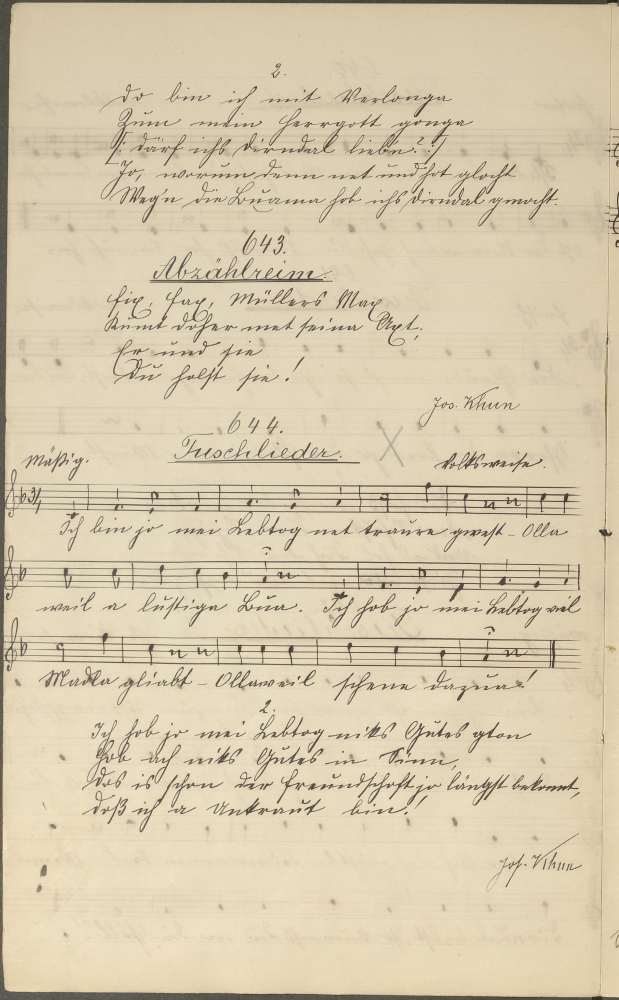 2.
Do bin ich mit Verlonga
Zum mein Herrgott gonga
/: därf ichs Dirndal liebn? :/
Jo, worum denn net und hot glocht
Weg'n die Buama hob ichs Dirndal gmocht.
643.
Abzählreim.
Fix, Fax, Müllers Max
Kumt doher met seina Axt,
Er und sie
Du holst sie!
Jos. Khun
644.
Tuschlieder.
Mäßig.
Volksweise.
Ich bin jo mei Lebtog net traure gwest - Olla
weil a lustiga Bua. Ich hob jo mei Lebtog viel
Madla gliabt - Ollaweil schene dazua!
2.
Ich hob jo mei Lebtog niks Gutes gton
Hob ach niks Gutes in Sinn,
Dos is schon der Freundschoft jo längst bekonnt,
doß ich a Unkraut bin!
Jos. Khun